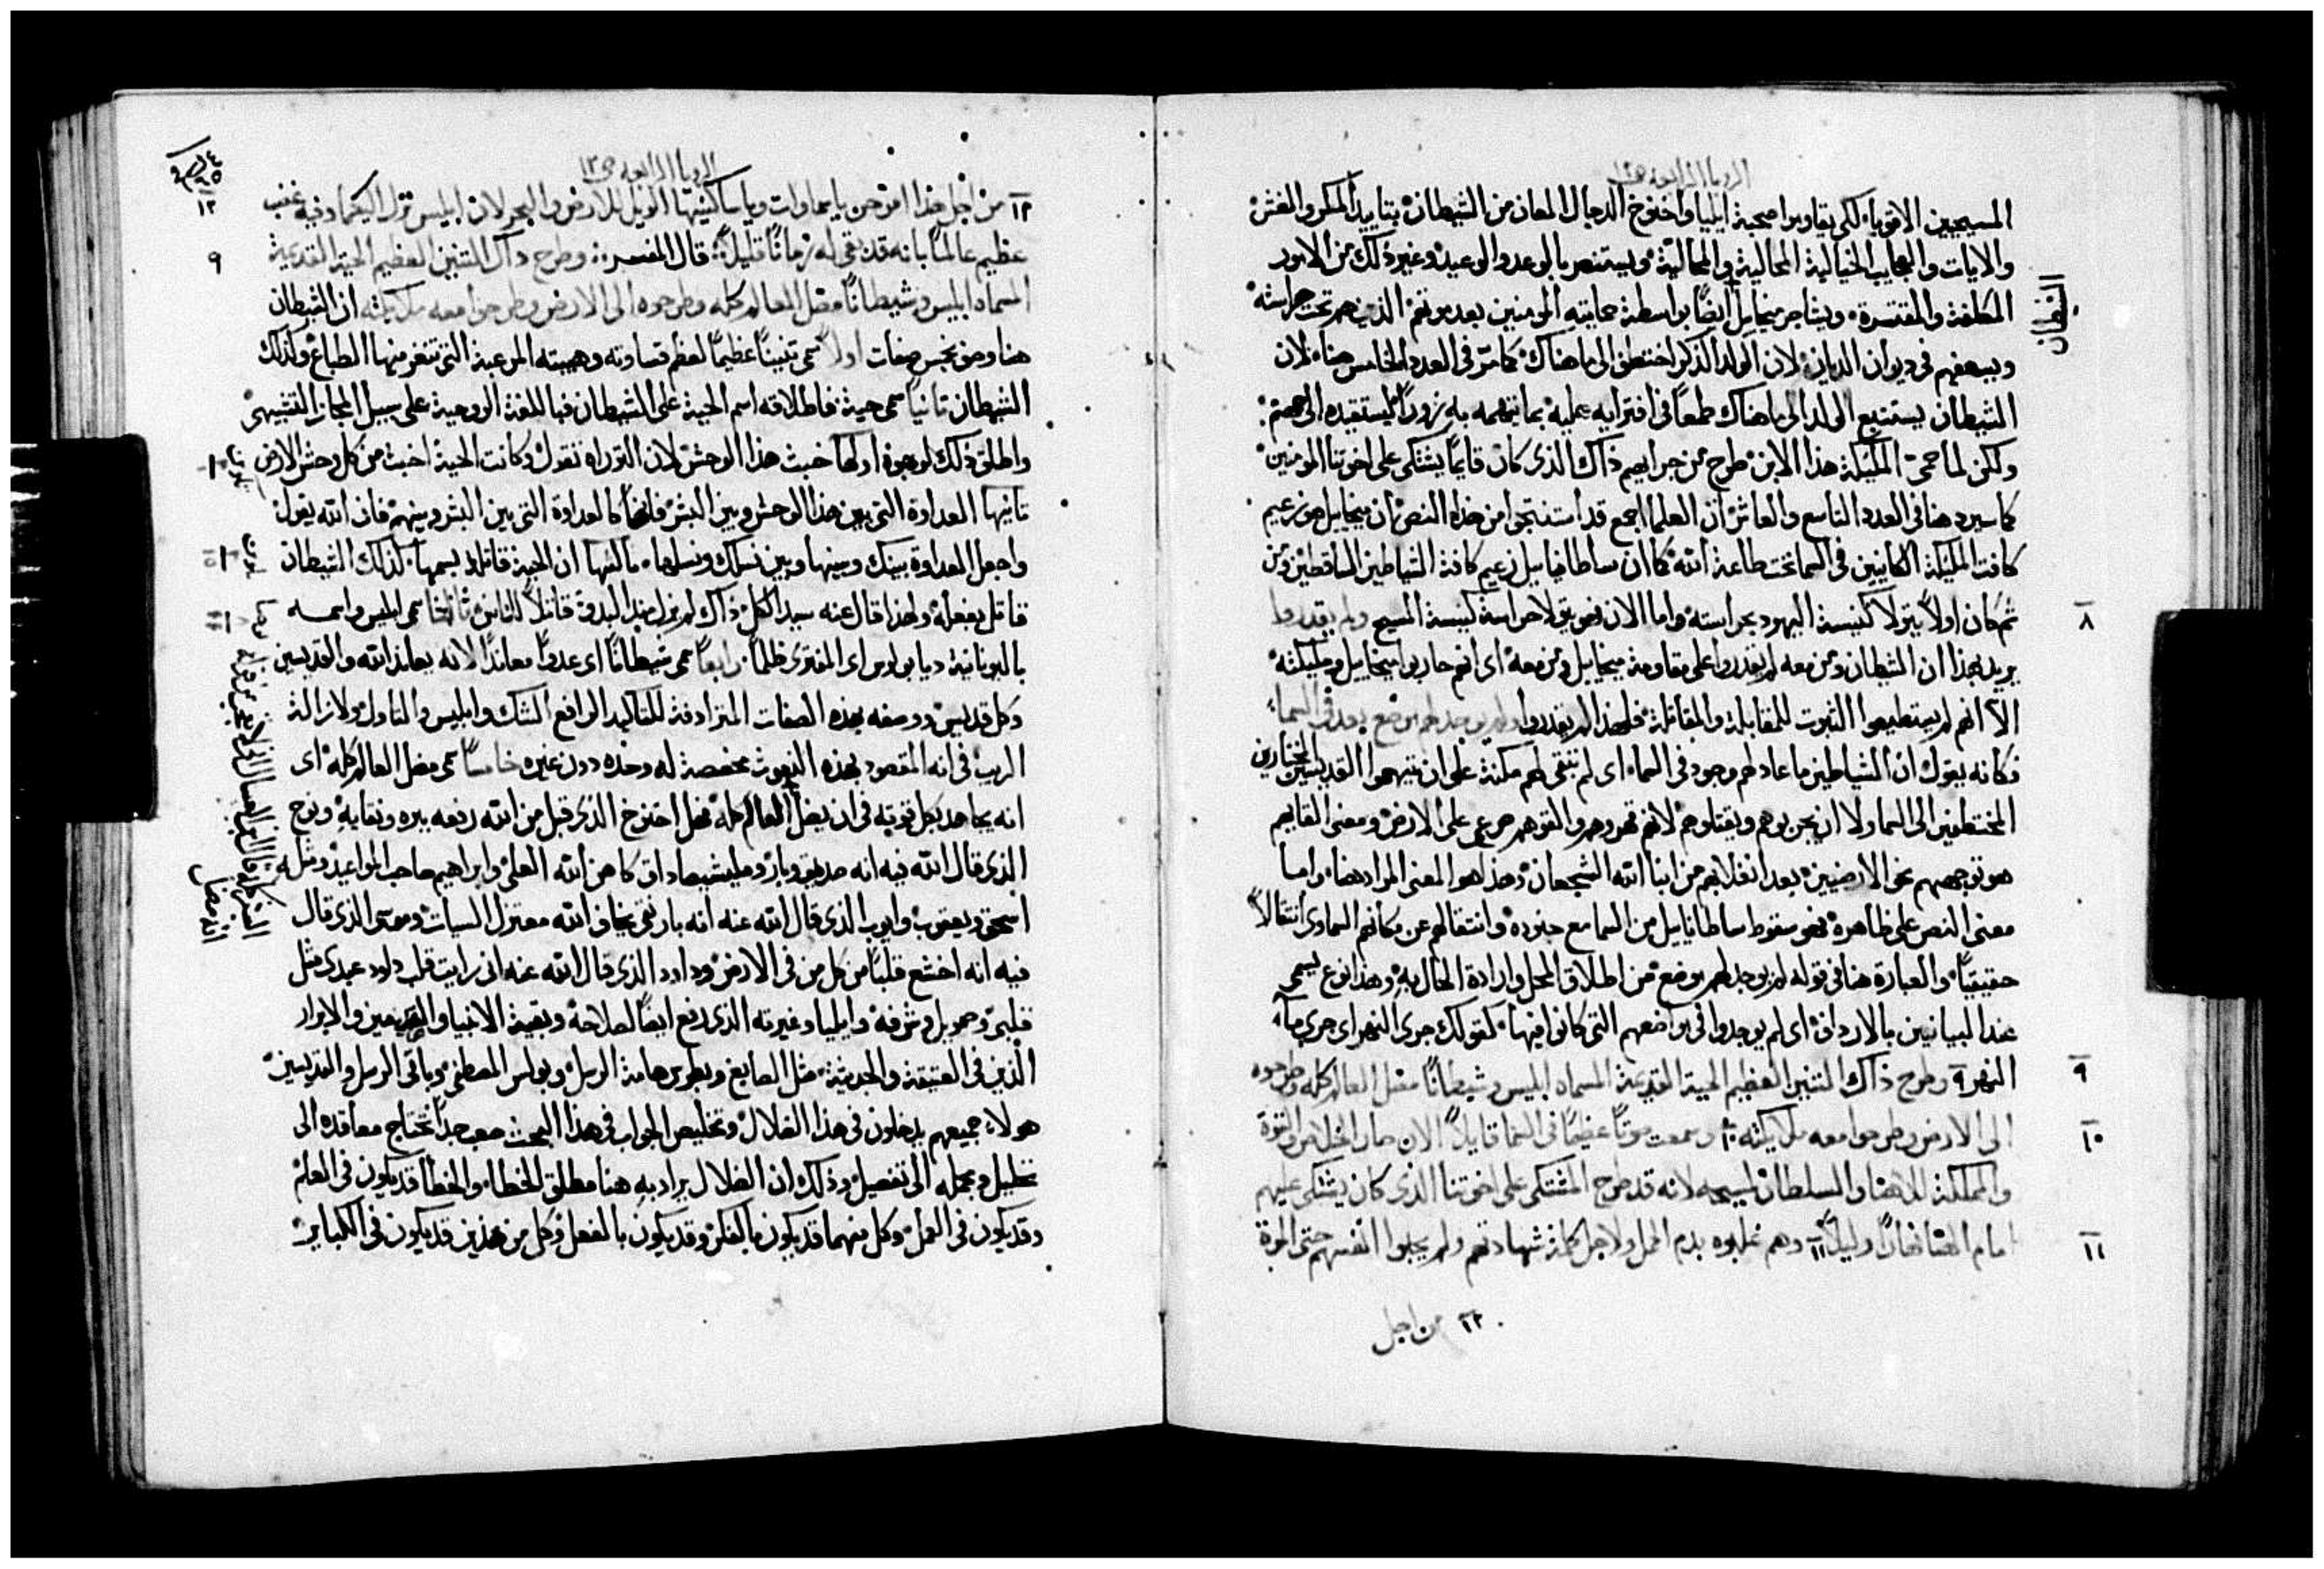 الرويا الرابعة
المسيحيين الاقويا لكي يقاوموا صحبة ايليا واخنوخ الدجال المعان من الشيطان بتاييد المكر والغش
والايات والعجايب الخيالية المحالية والمحالية ويستنصر بالوعد والوعيد وغير ذلك من الامور
المكلفة والمقتسرة ويشاجر ميخاييل ايضًا بواسطة حمايته المومنين بعد موتهم الذين هم تحت حراسته
ويسعفهم في ديوان الديان لان الولد الذكر اختطف الى ما هناك كما مر في العدد الخامس هنا لان
الشيطان يستتبع الولد الى ما هناك طمعًا في افترايه عليه بما يتهمه به زورًا ليستقيده الى جهنم
ولكن لما حمى المليكة هذا الابن طرح من جرايهم ذاك الذي كان قايمًا يشتكي على اخوتنا المومنين
كما سيرد هنا في العدد التاسع والعاشر ان العلما اجمع قد استنتجوا من هذا النص ان ميخاييل هو زعيم
كافة المليكة الكاينين في السما تحت طاعة الله كما ان ساطاناييل زعيم كافة الشياطين الساقطين ومن
ثم كان اولًا يتولا كنيسة اليهود بحراسته واما الان فهو يتولا حراسة كنيسة المسيح ولم يقدروا
٨
يريد بهذا ان الشيطان ومن معه لم يقدروا على مقاومة ميخاييل ومن معه اي انهم حاربوا ميخاييل ومليكته
الا انهم لم يستطيعوا الثبوت للمقابلة والمقاتلة فلهذا لم يقدروا ولم يوجد لهم موضع بعد في السماء
فكانه يقول ان الشياطين ما عاد لهم وجود في السماء اي لم تبقى لهم مكنة على ان يتهموا القديسين المختارين
المختطفين الى السما ولا ان يجربوهم ويقتلوهم لانهم قهروهم والقوهم صرعى على الارض ومعنى القايهم
هو توجههم نحو الارضيين بعد انغلابهم من ابنا الله الشجعان وهذا هو المعنى المراد هنا واما
معنى النص على ظاهره فهو سقوط ساطاناييل من السما مع جنوده وانتقالهم عن مكانهم السماوي انتقالًا
حقيقيًا والعبارة هنا في قوله لم يوجد لهم موضع من اطلاق المحل وارادة الحال به وهذا نوع يسمى
عند البيانيين بالارداف اي لم يوجدوا في مواضعهم التي كانوا فيها كقولك جرى النهر اي جرى مآء
النهر ٩ وطرح ذاك التنين العظيم الحية القديمة المسماه ابليس وشيطانًا مضل العالم كله وطرحوه
٩
الى الارض وطرحوا معه ملايكته ١٠ وسمعت صوتًا عظيمًا في السما قايلًا الان صار الخلاص والقوة
١٠
والمملكة لالاهنا والسلطان لمسيحه لانه قد طرح المشتكي على اخوتنا الذي كان يشتكي عليهم
امام الاهنا نهارًا وليلًا ١١ وهم غلبوه بدم الحمل ولاجل كلمة شهادتهم ولم يحبوا انفسهم حتى الموت
١١
١٢ من اجل
الرويا الرابعة ص ١٢
١٢ من اجل هذا افرحن يا سماوات ويا ساكنيها الويل للارض والبحر لان ابليس نزل اليكما وفيه غضب
١٢
عظيم عالمًا بانه قد بقي له زمانًا قليلًا قال المفسر وطرح ذاك التنين العظيم الحية القديمة
٩
المسماه ابليس وشيطانًا مضل العالم كله وطرحوه الى الارض وطرحوا معه ملايكته ان الشيطان
هنا وصف بخمس صفات اولًا سمي تنينًا عظيمًا لعظم قساوته وهيبته المرعبة التي تنفر منها الطباع ولذلك
الشيطان ثانيًا سمي حية فاطلاقه اسم الحية على الشيطان فبالمعنى الروحية على سبيل المجاز التشبيهي
واطلق ذلك لوجوه اولها خبث هذا الوحش لان التوراه تقول وكانت الحية اخبث من كل وحش الارض
ثانيها العداوة التي بين هذا الوحش وبين البشر فانها كالعداوة التي بين البشر وبينهم فان الله يقول
واجعل العداوة بينك وبينها وبين نسلك ونسلها ثالثها ان الحية قاتلة بسمها كذلك الشيطان
قاتل بفعله ولهذا قال عنه سيد الكل ذاك لم يزل منذ البدو قاتلًا للناس ثالثًا سمي ابليس واسمه
باليونانية ديابولوس اي المفتري ظلمًا رابعًا سمي شيطانًا اي عدوًا معاندًا لانه يعاند الله والقديسين
وكل قديس ووصفه بهذه الصفات المترادفة للتاكيد الرافع الشك وابليس والتاول ولازالة
الريب في انه المقصود بهذه النعوث مخصصة له وحده دون غيره خامسًا سمي مضل العالم كله اي
انه يجاهد بكل قوته في ان يضل العالم كله فهل اخنوخ الذي قيل من الله رفعه ببره ونقايه ونوح
الذي قال الله فيه انه صديق وبار وملشيصاداق كاهن الله العلي وابراهيم صاحب المواعيد ومثله
اسحق ويعقوب وايوب الذي قال الله عنه انه بار نقي يخاف الله معتزل السيات وموسى الذي قال
فيه انه اخشع قلبًا من كل من في الارض وداود الذي قال الله عنه اني رايت قلب داود عبدي مثل
قلبي وصمويل وشرفه وايليا وغيرته الذي رفع ايضًا لصلاحه وبقية الانبيا والقديسين والابرار
الذين في العتيقة والحديثة مثل الصابغ وبطرس هامة الرسل وبولس المصطفى وباقي الرسل والقديسين
هولاء جميعهم يدخلون في هذا الضلال وتخليص الجواب في هذا البحث صعب جدًا تحتاج معاقده الى
تحليل ومجمله الى تفصيل وذلك ان الضلال يراد به هنا مطلق الخطاء والخطا قد يكون في العلم
وقد يكون في العمل وكل منهما قد يكون بالفكر وقد يكون بالفعل وكل من هذين قد يكون في الكباير